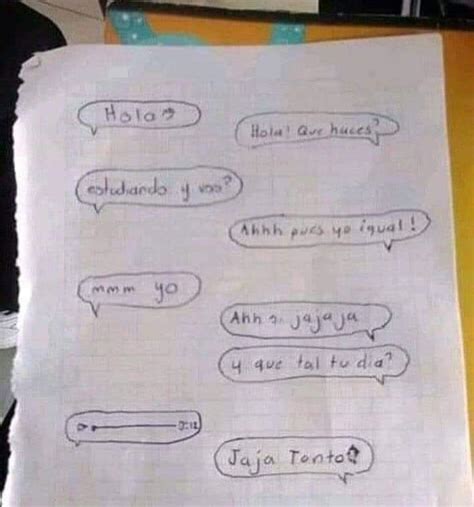 Hola
Hola! Que haces?
estudiando y vos?
Ahhh pues yo igual!
mmm yo
Ahh si jajaja
y que tal tu dia?
Jaja Tonto